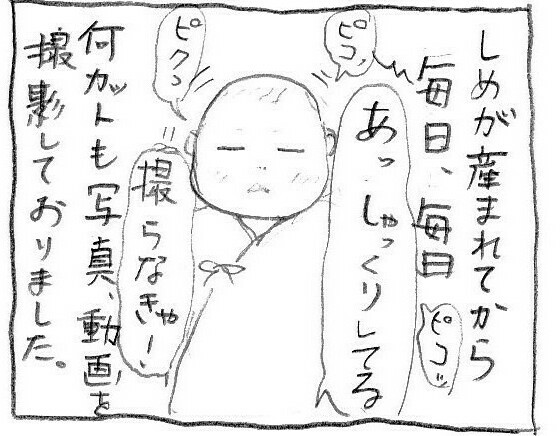 しめが産まれてから
毎日、毎日
ピコッ
ピコッ
あっ しゃっくりしてる
ピクッ
撮らなきゃー
何カットも写真、動画を
撮影しておりました。